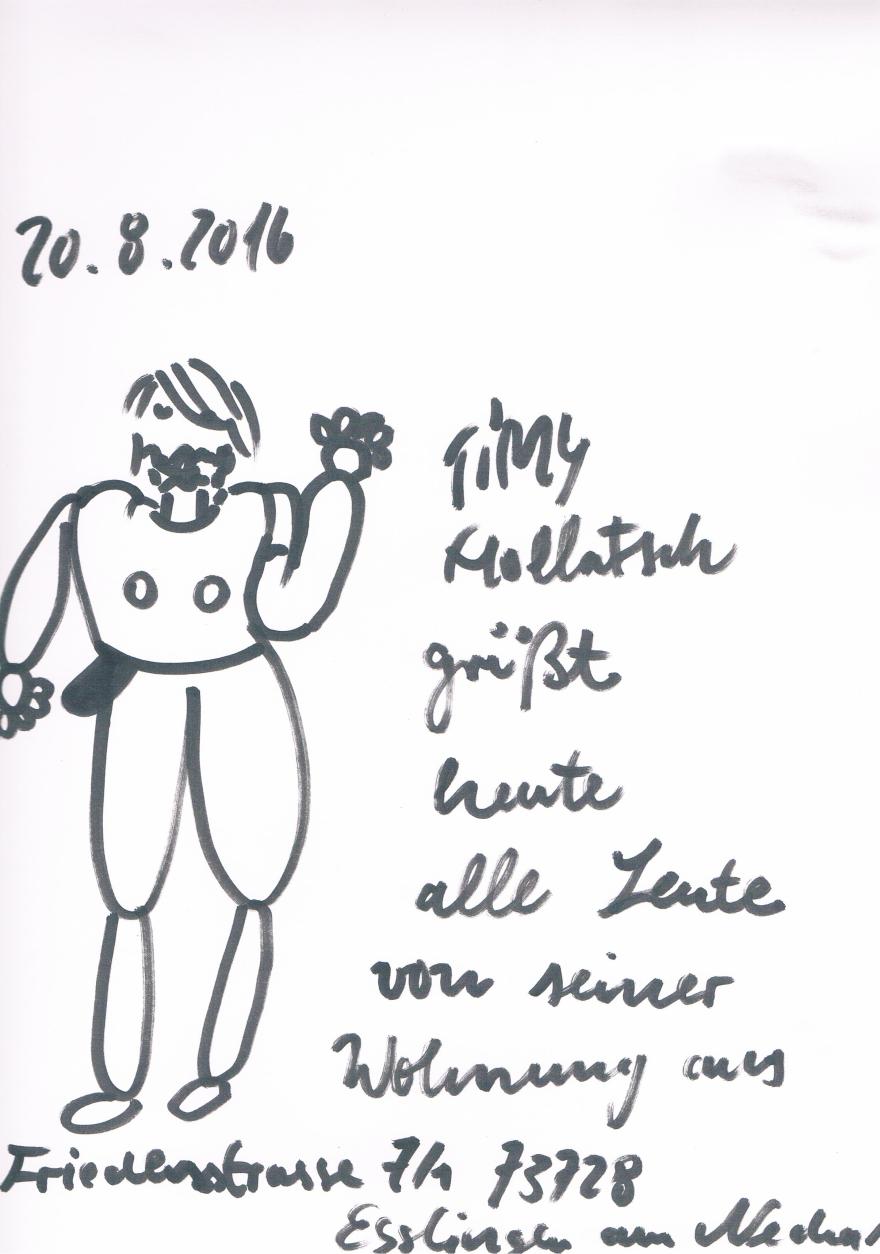 20.8.2016
TiMy
Mollatsch
grüßt
heute
alle Leute
von seiner
Wohnung aus
Friedensstrasse 7/1 73728
Esslingen am Neckar